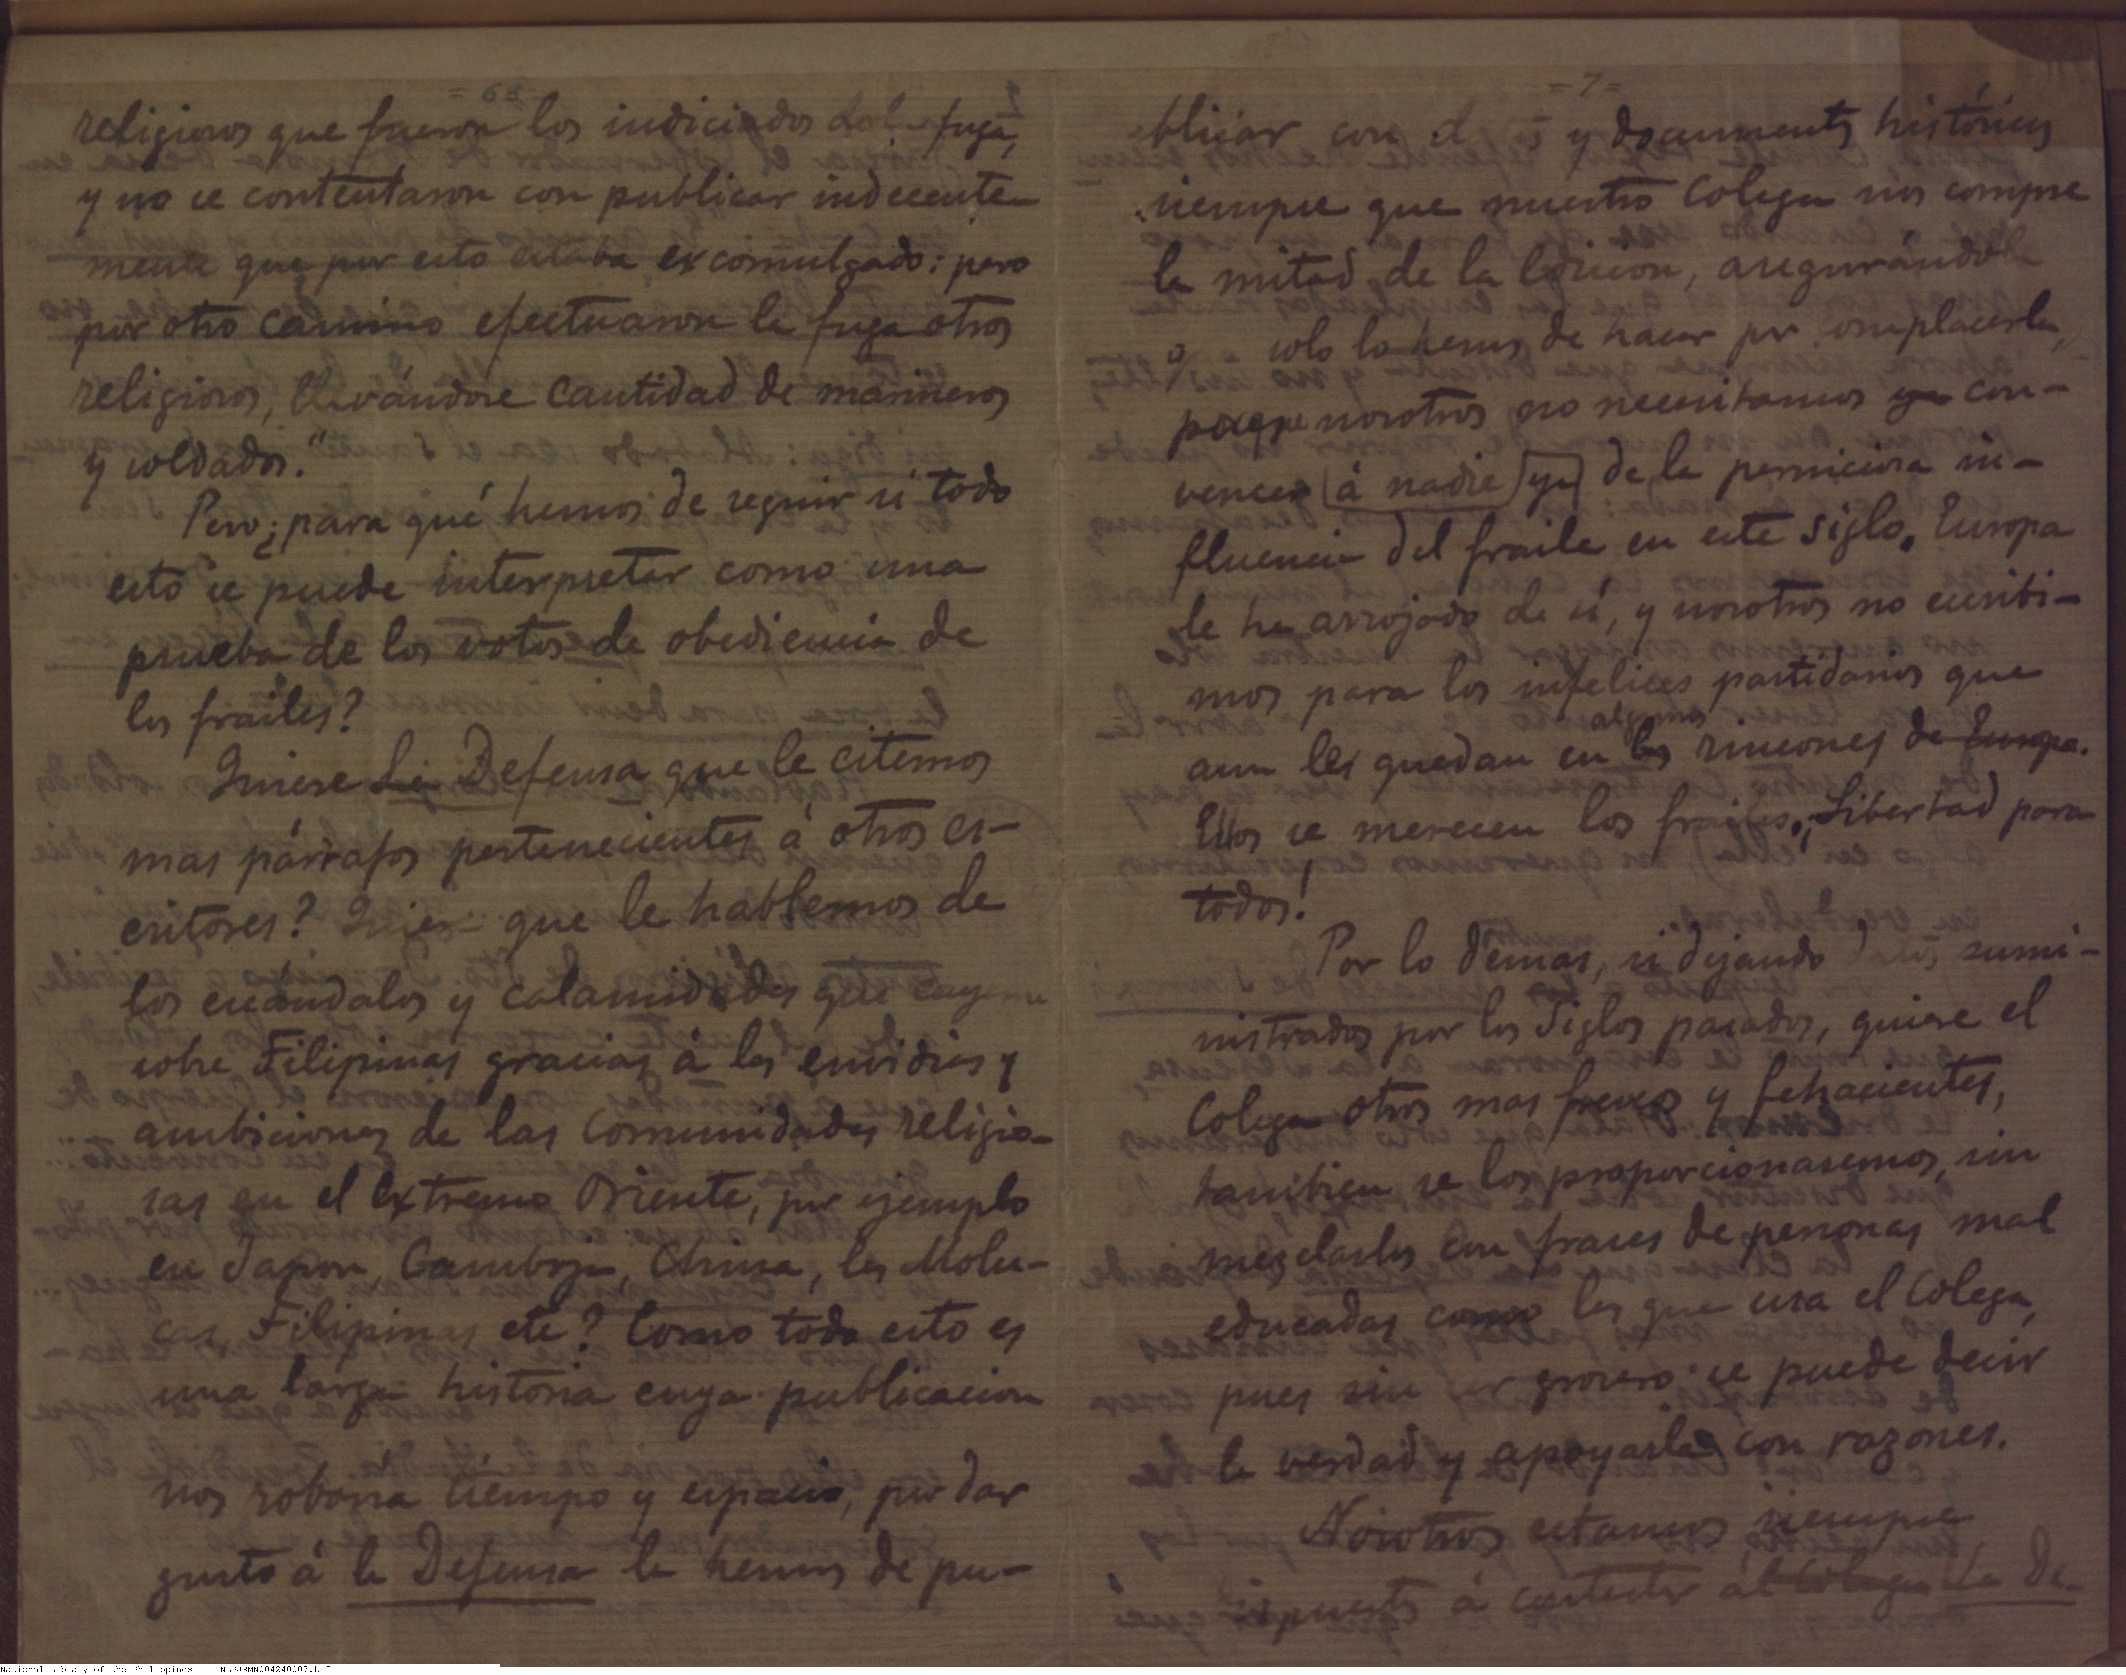 = 6 =
religiosos que fueron los indiciados de la fuga,
y no se contentaron con publicar indecente-
mente que por esto estaba excomulgado; pero
por otro camino efectuaron la fuga otros
religiosos, llevándose cantidad de marineros
y soldados."
Pero ¿para qué hemos de seguir si todo
esto se puede interpretar como una
prueba de los votos de obediencia de
los frailes?
Quiere La Defensa que le citemos
mas párrafos pertenecientes á otros es-
critores? Quiere que le hablemos de
los escándalos y calamidades que cayeron
sobre Filipinas gracias á las envidias y
ambiciones de las comunidades religio-
sas en el extremo Oriente, por ejemplo
en Japon, Camboja, China, las Molu-
cas, Filipinas etc? Como todo esto es
una larga historia cuya publicacion
nos robaria tiempo y espacio, por dar
gusto á la Defensa la hemos de pu-
= 7 =
blicar con y documentos históricos
siempre que nuestro Colega nos compre
la mitad de la edicion, asegurándole
solo lo hemos de hacer por complacerle,
porque nosotros no necesitamos ya con-
vencer á nadie ya de la perniciosa in-
fluencia del fraile en este siglo. Europa
le ha arrojado de sí, y nosotros no escribi-
mos para los infelices partidarios que
algunos
aun les quedan en los rincones de Europa.
Ellos se merecen los frailes. ¡Libertad para
todos!
Por lo demas, si dejando datos sumi-
nistrados por los siglos pasados, quiere el
Colega otros mas frescos y fehacientes,
tambien se los proporcionaremos, sin
mezclarlos con frases de personas mal
educadas como las que usa el Colega,
pues sin ser grosero se puede decir
la verdad y apoyarla con razones.
Nosotros estamos siempre
dispuestos á contestar al Colega La De-